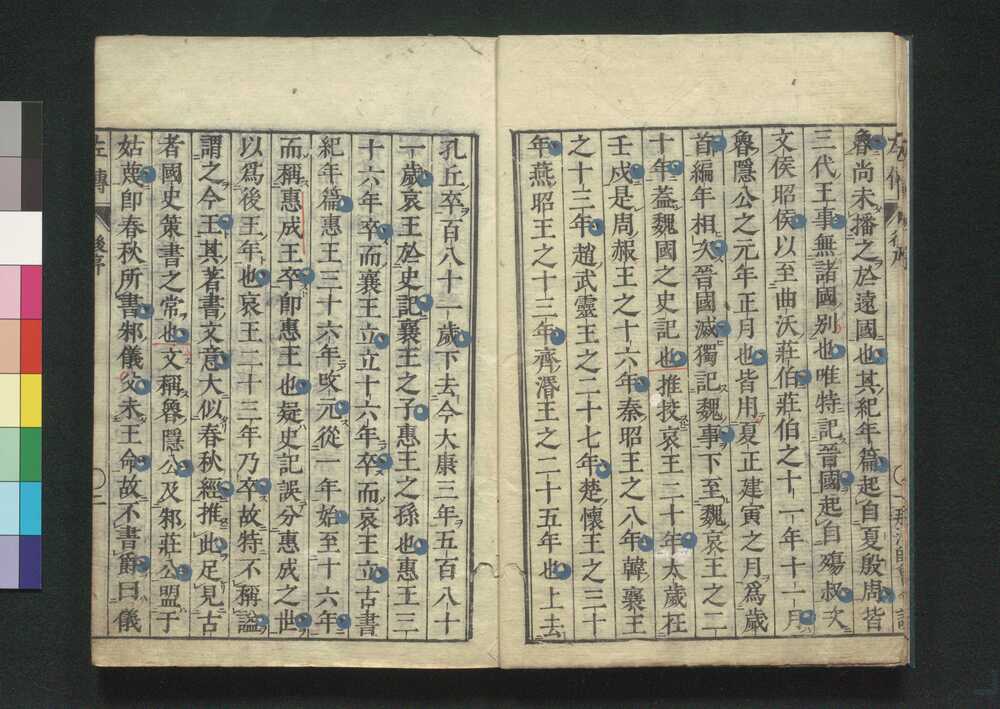 魯尚未播之於遠國也其紀年篇起自夏殷周皆
三代王事無諸國別也唯特記晉國起自殤叔次
文侯昭侯以至曲沃莊伯莊伯之十一年十一月
魯隱公之元年正月也皆用夏正建寅之月爲歲
首編年相次晉國滅獨記魏事下至魏哀王之二
十年葢魏國之史記也推挍哀王二十年太歲在
壬戌是周赧王之十六年秦昭王之八年韓襄王
之十三年趙武靈王之二十七年楚懷王之三十
年燕昭王之十三年齊湣王之二十五年也上去
孔丘卒百八十一歲下去今大康三年五百八十
一歲哀王於史記襄王之子惠王之孫也惠王三
十六年卒而襄王立立十六年卒而哀王立古書
紀年篇惠王三十六年攺元從一年始至十六年
而稱惠成王卒卽惠王也疑史記誤分惠成之世
以爲後王年也哀王二十三年乃卒故特不稱謚
謂之今王其著書文意大似春秋經推此足見古
者國史策書之常也文稱魯隱公及邾莊公盟于
姑蔑卽春秋所書邾儀父未王命故不書爵曰儀
左傳
後序
二